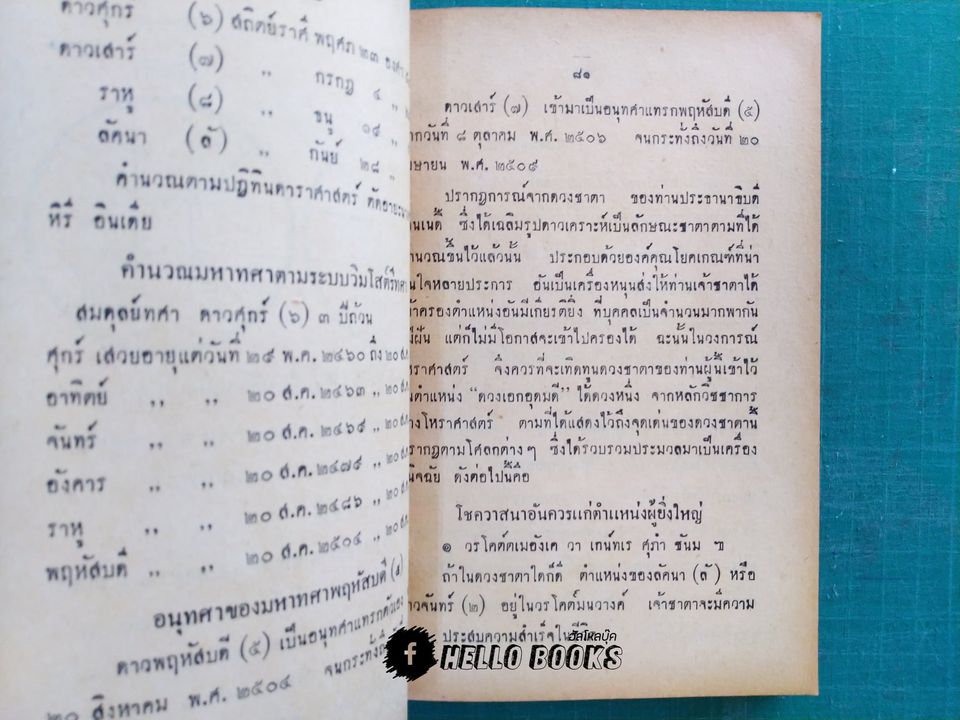 ดาวศุกร์ (๖) สถิตย์ราศี พฤศภ ๒๓ องศา
ดาวเสาร์ (๗) ,, กรกฎ ๔ ,,
ราหู (๘) ,, ธนู ๑๔ ,,
ลัคนา (ลั) ,, กันย์ ๒๘ ,,
คำนวณตามปฏิทินดาราศาสตร์ ตัดอายะนางศ
หิรี อินเดีย
คำนวณมหาทศาตามระบบวิมโสตรีทศา
สมดุลย์ทศา ดาวศุกร์ (๖) ๓ ปีถ้วน
ศุกร์ เสวยอายุแต่วันที่ ๒๙ พ.ค. ๒๔๖๐ ถึง ๒๐ ส.ค.
อาทิตย์ ,, ,, ๒๐ ส.ค. ๒๔๖๓ ,, ๒๐ ส.ค.
จันทร์ ,, ,, ๒๐ ส.ค. ๒๔๖๙ ,, ๒๐ ส.ค.
อังคาร ,, ,, ๒๐ ส.ค. ๒๔๗๙ ,, ๒๐ ส.ค.
ราหู ,, ,, ๒๐ ส.ค. ๒๔๘๖ ,, ๒๐ ส.ค.
พฤหัสบดี ,, ,, ๒๐ ส.ค. ๒๕๐๔ ,, ๒๐ ส.ค.
อนุทศาของมหาทศาพฤหัสบดี
ดาวพฤหัสบดี (๕) เป็นอนุทศาแทรกตัวเอง
๒๐ สิงหาคม พ.ศ. ๒๕๐๔ จนกระทั่งถึงวันที่
๘๑
ดาวเสาร์ (๗) เข้ามาเป็นอนุทศาแทรกพฤหัสบดี (๕)
ากวันที่ ๘ ตุลาคม พ.ศ. ๒๕๐๖ จนกระทั่งถึงวันที่ ๒๐
มษายน พ.ศ. ๒๕๐๙
ปรากฏการณ์จากดวงชาตา ของท่านประธานาธิบดี
นเนดี้ ซึ่งได้เฉลิมรูปดาวเคราะห์เป็นลักษณะชาตาตามที่ได้
านวณขึ้นไว้แล้วนั้น ประกอบด้วยองค์คุณโยคเกณฑ์ที่น่า
นใจหลายประการ อันเป็นเครื่องหนุนส่งให้ท่านเจ้าชาตาได้
าครองตำแหน่งอันมีเกียรติยิ่ง ที่บุคคลเป็นจำนวนมากพากัน
ฝัน แต่ก็ไม่มีโอกาสจะเข้าไปครองได้ ฉะนั้นในวงการณ์
หราศาสตร์ จึงควรที่จะเทิดทูนดวงชาตาของท่านผู้นี้เข้าไว้
นตำแหน่ง “ดวงเอกอุดมดี” ได้ดวงหนึ่ง จากหลักวิชชาการ
างโหราศาสตร์ ตามที่ได้แสดงไว้ถึงจุดเด่นของดวงชาตานี้
รากฏตามโศลกต่างๆ ซึ่งได้รวบรวมประมวลมาเป็นเครื่อง
นิจฉัย ดังต่อไปนี้คือ
โชควาสนาอันควรแก่ตำแหน่งผู้ยิ่งใหญ่
๑ วรโคต์ตเมอังเค วา เกน์ทเร ศุภํา ชันม ฯ
ถ้าในดวงชาตาใดก็ดี ตำแหน่งของลัคนา (ลั) หรือ
าวจันทร์ (๒) อยู่ในวรโคต์มนวางค์ เจ้าชาตาจะมีความ
ประสบความสำเร็จในชีวิต
ฮัลโหลบุ๊ค
f HELLO BOOKS